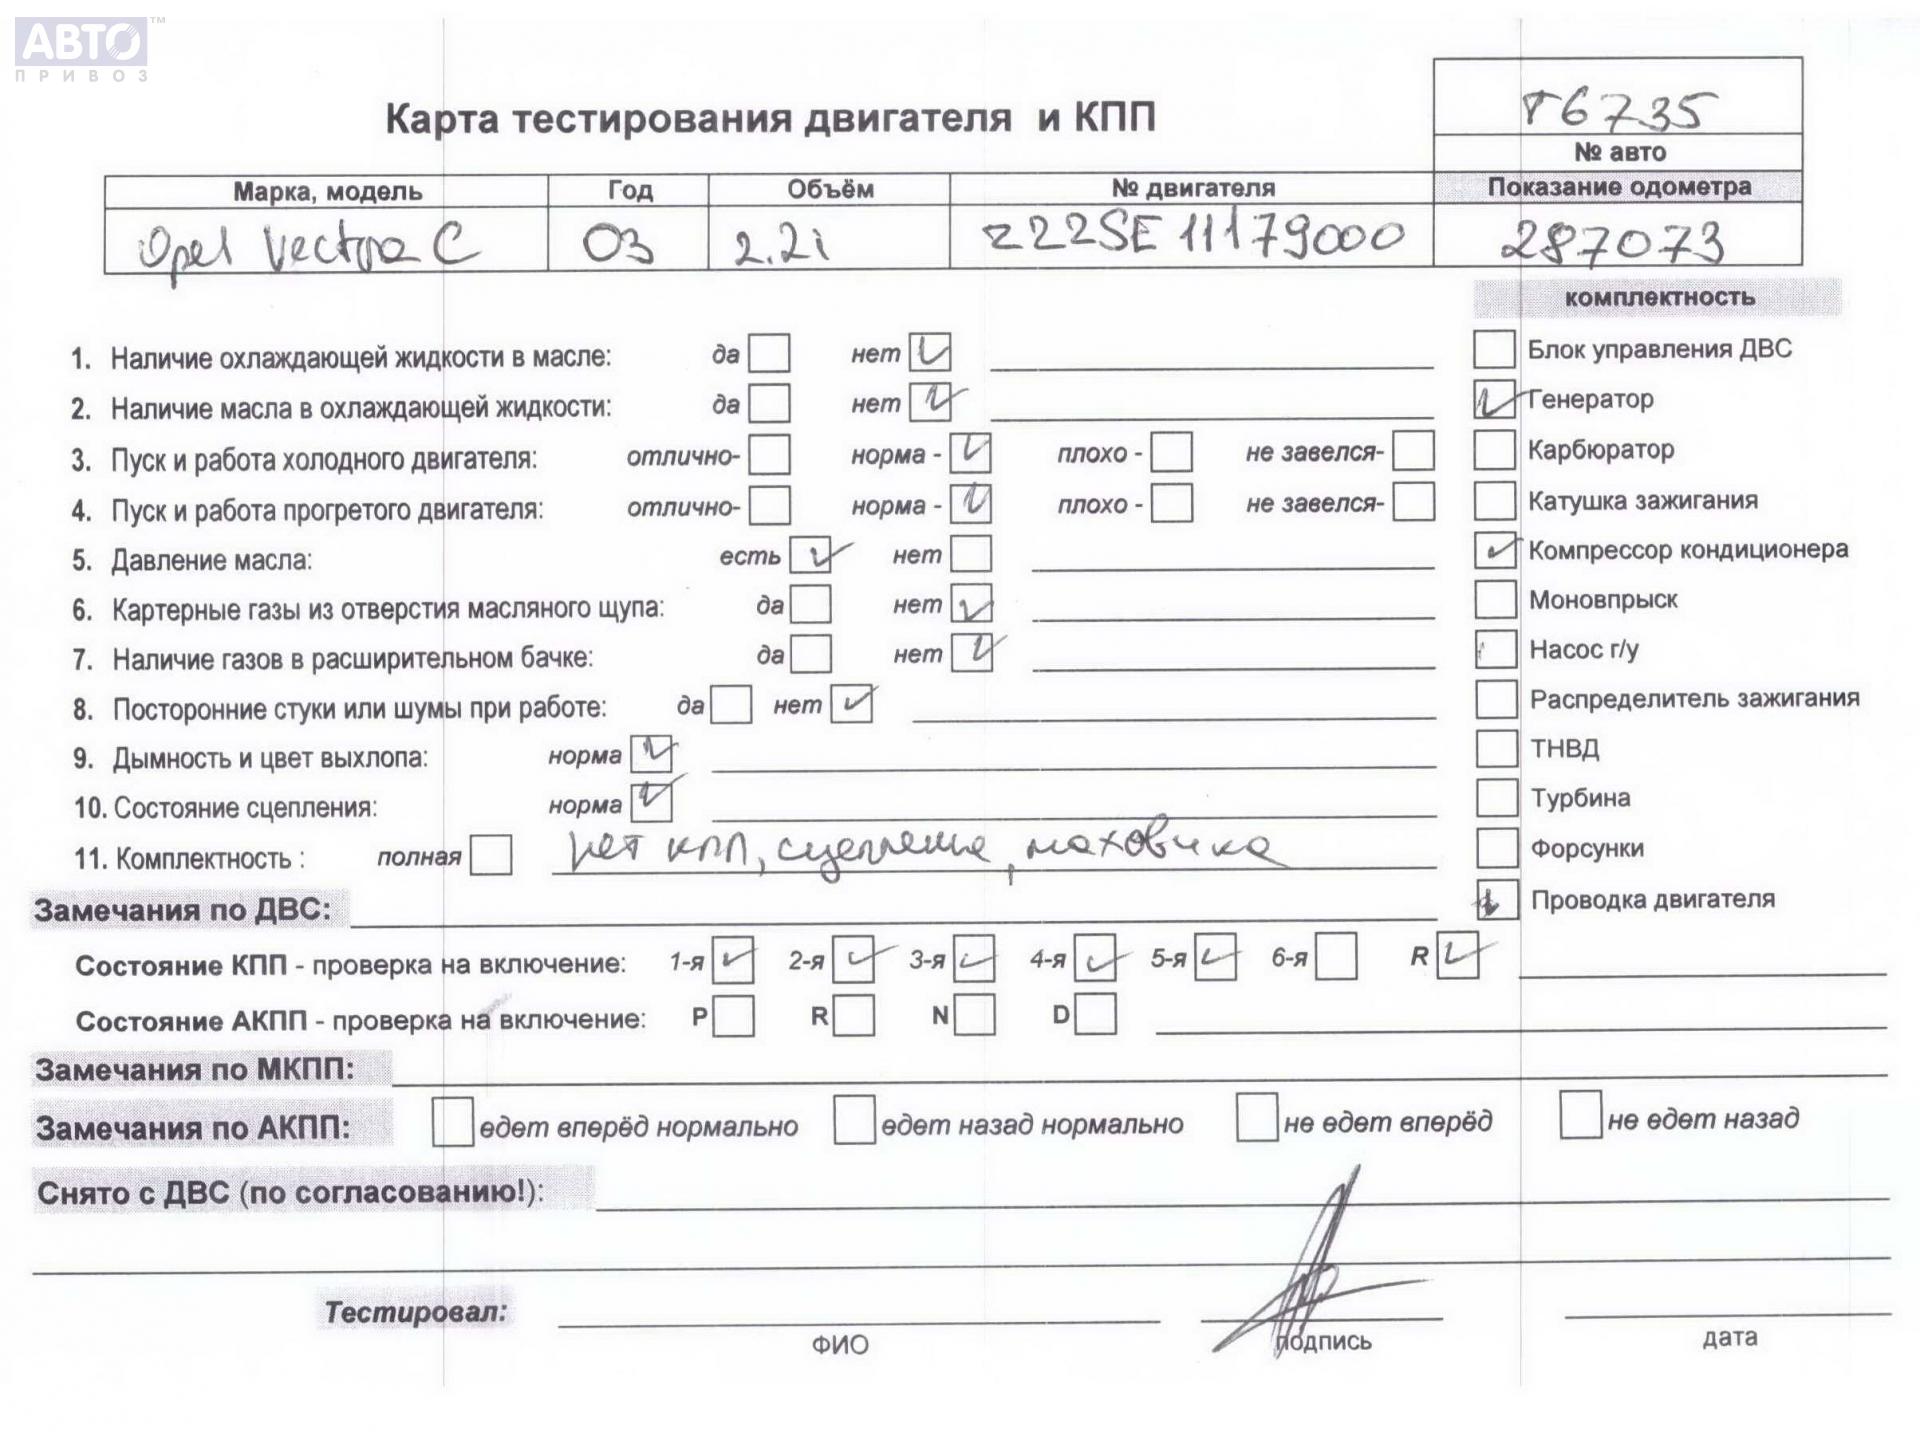 АВТО™
ПРИВОЗ
Карта тестирования двигателя и КПП
т6735
№ авто
Марка, модель Год Объём № двигателя Показание одометра
Opel Vectra C 03 2.2i z22SE 11179000 287073
комплектность
1. Наличие охлаждающей жидкости в масле: да нет
Блок управления ДВС
2. Наличие масла в охлаждающей жидкости: да нет
Генератор
3. Пуск и работа холодного двигателя: отлично- норма - плохо - не завелся-
Карбюратор
4. Пуск и работа прогретого двигателя: отлично- норма - плохо - не завелся-
Катушка зажигания
5. Давление масла: есть нет
Компрессор кондиционера
6. Картерные газы из отверстия масляного щупа: да нет
Моновпрыск
7. Наличие газов в расширительном бачке: да нет
Насос г/у
8. Посторонние стуки или шумы при работе: да нет
Распределитель зажигания
9. Дымность и цвет выхлопа: норма
ТНВД
10. Состояние сцепления: норма
Турбина
11. Комплектность : полная нет КПП, сцепление, маховика
Форсунки
Замечания по ДВС:
Проводка двигателя
Состояние КПП - проверка на включение: 1-я 2-я 3-я 4-я 5-я 6-я R
Состояние АКПП - проверка на включение: P R N D
Замечания по МКПП:
Замечания по АКПП: едет вперёд нормально едет назад нормально не едет вперёд не едет назад
Снято с ДВС (по согласованию!):
Тестировал:
ФИО подпись дата